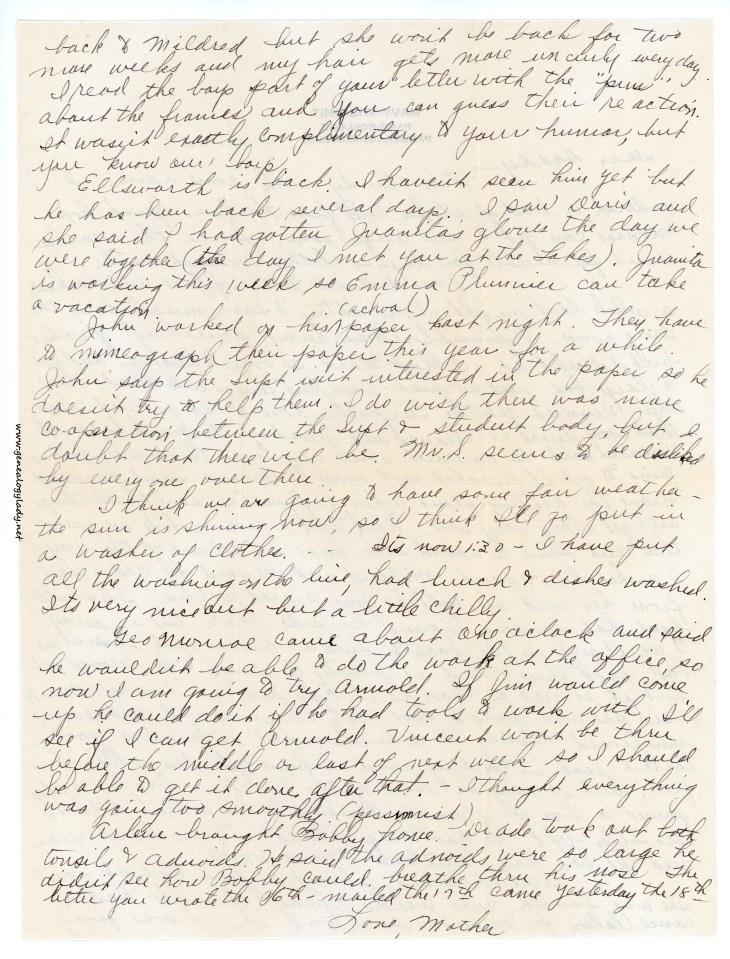 back to Mildred but she won't be back for two
more weeks and my hair gets more uncurly every day.
I read the boys part of your letter with the "puns"
about the frances and you can guess their reaction.
It wasn't exactly complimentary to your humor, but
you know our boys.
Ellsworth is back. I haven't seen him yet but
he has been back several days. I saw Doris and
she said I had gotten Juanitas gloves the day we
were together (the day I met you at the Lakes). Juanita
is working this week so Emma Plummer can take
a vacation.
John worked on his (school) paper last night. They have
to mimeograph their paper this year for a while.
John says the Supt isn't interested in the paper so he
doesn't try to help them. I do wish there was more
co-operation between the Supt & student body, but I
doubt that there will be. Mr. S. seems to be disliked
by everyone over there.
I think we are going to have some fair weather -
the sun is shining now, so I think I'll go put in
a washer of clothes. - - Its now 1:30 - I have put
all the washing on the line, had lunch & dishes washed.
Its very nice out but a little chilly.
Geo Monroe came about one o'clock and said
he wouldn't be able to do the work at the office, so
now I am going to try Arnold. If Jim would come
up he could do it if he had tools to work with. I'll
see if I can get Arnold. Vincent won't be thru
before the middle or last of next week so I should
be able to get it done after that. - I thought everything
was going too smoothly. (pessimist)
Arlene brought Bobby home. Dr Ade took out both
tonsils & adnoids. He said the adnoids were so large he
didn't see how Bobby could breathe thru his nose. The
letter you wrote the 16th - mailed the 17th came yesterday the 18th
Love, Mother
www.genealogylady.net